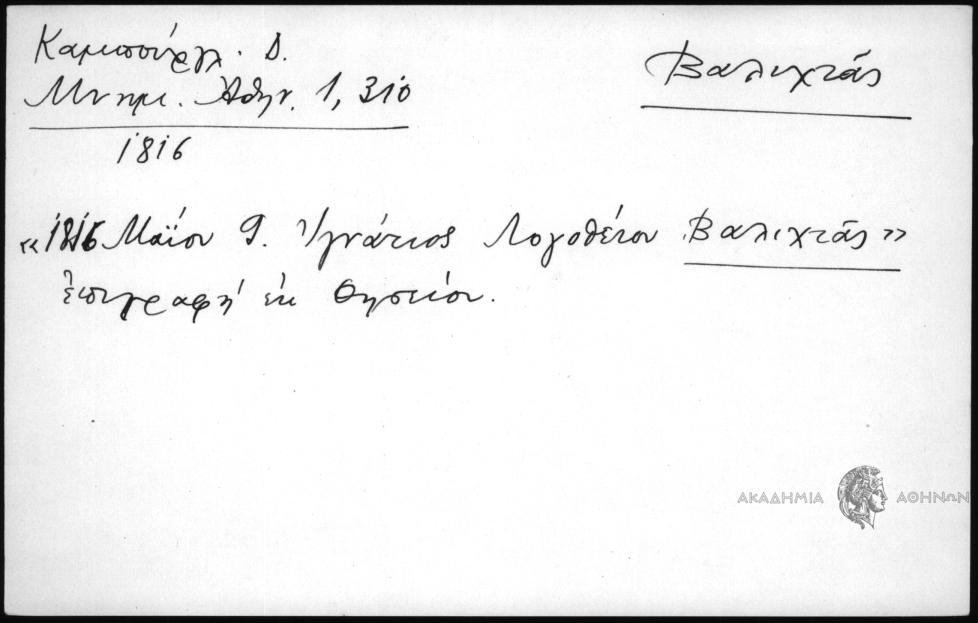 Καμπούργλ. Δ.
Μνημ. Ἀθην. 1, 310
1816
Βαλιχτᾶς
«1816 Μαΐου 9. Ἰγνάτιος Λογοθέτου Βαλιχτᾶς»
ἐπιγραφή ἐκ Θησείου.
ΑΚΑΔΗΜΙΑ ΑΘΗΝΩΝ